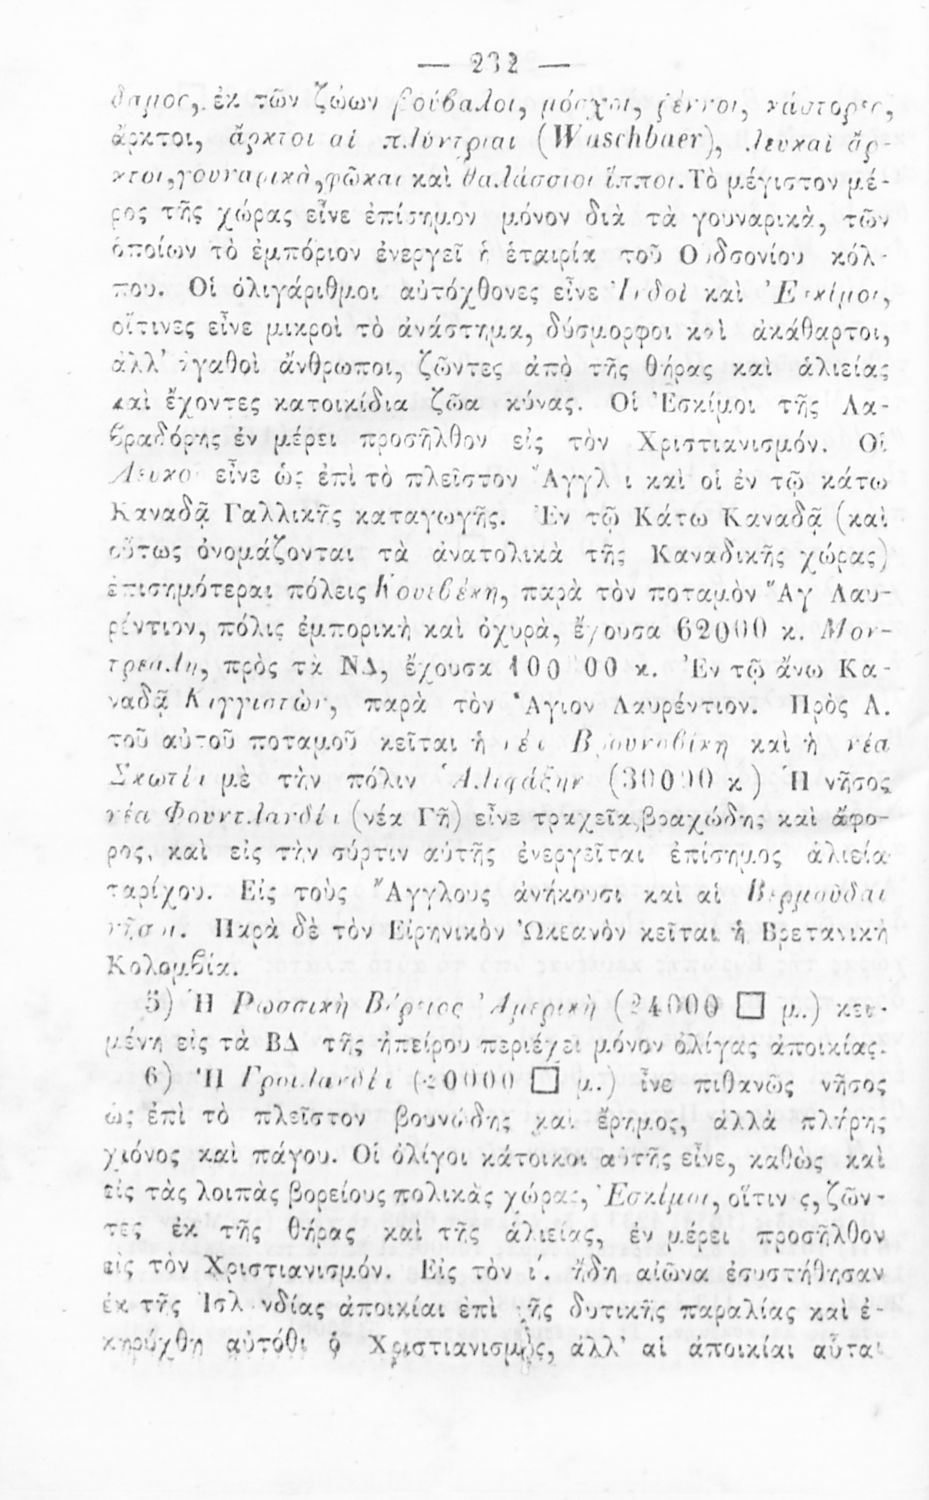 — 232 —
δαμος, ἐκ τῶν ζώων βούβαλοι, μόσχοι, ῥέννοι, κάστορες,
ἄρκτοι, ἄρκτοι αἱ πλύντριαι (Waschbaer), λευκαὶ ἄρ-
κτοι, γουναρικὰ, φῶκαι καὶ θαλάσσιοι ἵπποι. Τὸ μέγιστον μέ-
ρος τῆς χώρας εἶνε ἐπίσημον μόνον διὰ τὰ γουναρικὰ, τῶν
ὁποίων τὸ ἐμπόριον ἐνεργεῖ ἡ ἑταιρία τοῦ Οὐδσονίου κόλ-
που. Οἱ ὀλιγάριθμοι αὐτόχθονες εἶνε Ἰνδοὶ καὶ Ἐσκίμοι,
οἵτινες εἶνε μικροὶ τὸ ἀνάστημα, δύσμορφοι καὶ ἀκάθαρτοι,
ἀλλ' ἀγαθοὶ ἄνθρωποι, ζῶντες ἀπὸ τῆς θήρας καὶ ἁλιείας
καὶ ἔχοντες κατοικίδια ζῶα κύνας. Οἱ Ἐσκίμοι τῆς Λα-
βραδόρης ἐν μέρει προσῆλθον εἰς τὸν Χριστιανισμόν. Οἱ
Λευκοὶ εἶνε ὡς ἐπὶ τὸ πλεῖστον Ἄγγλοι καὶ οἱ ἐν τῷ κάτω
Καναδᾷ Γαλλικῆς καταγωγῆς. Ἐν τῷ Κάτω Καναδᾷ (καὶ
οὕτως ὀνομάζονται τὰ ἀνατολικὰ τῆς Καναδικῆς χώρας)
ἐπισημότεραι πόλεις Κουεβέκη, παρὰ τὸν ποταμὸν Ἅγ Λαυ-
ρέντιον, πόλις ἐμπορικὴ καὶ ὀχυρὰ, ἔχουσα 62000 κ. Μον-
τρεάλη, πρὸς τὰ ΝΔ, ἔχουσα 100 000 κ. Ἐν τῷ ἄνω Κα-
ναδᾷ Κιγγιστὼν, παρὰ τὸν Ἅγιον Λαυρέντιον. Πρὸς Λ.
τοῦ αὐτοῦ ποταμοῦ κεῖται ἡ νέα Βρουνσβίκη καὶ ἡ νέα
Σκωτία μὲ τὴν πόλιν Ἁλιφάξην (30000 κ) Ἡ νῆσος
νέα Φουντλανδία (νέα Γῆ) εἶνε τραχεῖα, βραχώδης καὶ ἄφο-
ρος, καὶ εἰς τὴν σύρτιν αὐτῆς ἐνεργεῖται ἐπίσημος ἁλιεία
ταρίχου. Εἰς τοὺς Ἄγγλους ἀνήκουσι καὶ αἱ Βερμοῦδαι
νῆσοι. Παρὰ δὲ τὸν Εἰρηνικὸν Ὠκεανὸν κεῖται ἡ Βρετανικὴ
Κολομβία.
5) Ἡ Ρωσσικὴ Βόρειος Ἀμερικὴ (24000 □ μ.) κει-
μένη εἰς τὰ ΒΔ τῆς ἠπείρου περιέχει μόνον ὀλίγας ἀποικίας.
6) Ἡ Γροιλανδία (20000 □ μ.) εἶνε πιθανῶς νῆσος
ὡς ἐπὶ τὸ πλεῖστον βουνώδης καὶ ἔρημος, ἀλλὰ πλήρης
χιόνος καὶ πάγου. Οἱ ὀλίγοι κάτοικοι αὐτῆς εἶνε, καθὼς καὶ
εἰς τὰς λοιπὰς βορείους πολικὰς χώρας, Ἐσκίμοι, οἵτινες, ζῶν-
τες ἐκ τῆς θήρας καὶ τῆς ἁλιείας, ἐν μέρει προσῆλθον
εἰς τὸν Χριστιανισμόν. Εἰς τὸν ι'. ἤδη αἰῶνα ἐσυστήθησαν
ἐκ τῆς Ἰσλανδίας ἀποικίαι ἐπὶ τῆς δυτικῆς παραλίας καὶ ἐ-
κηρύχθη αὐτόθι ὁ Χριστιανισμὸς, ἀλλ' αἱ ἀποικίαι αὗται